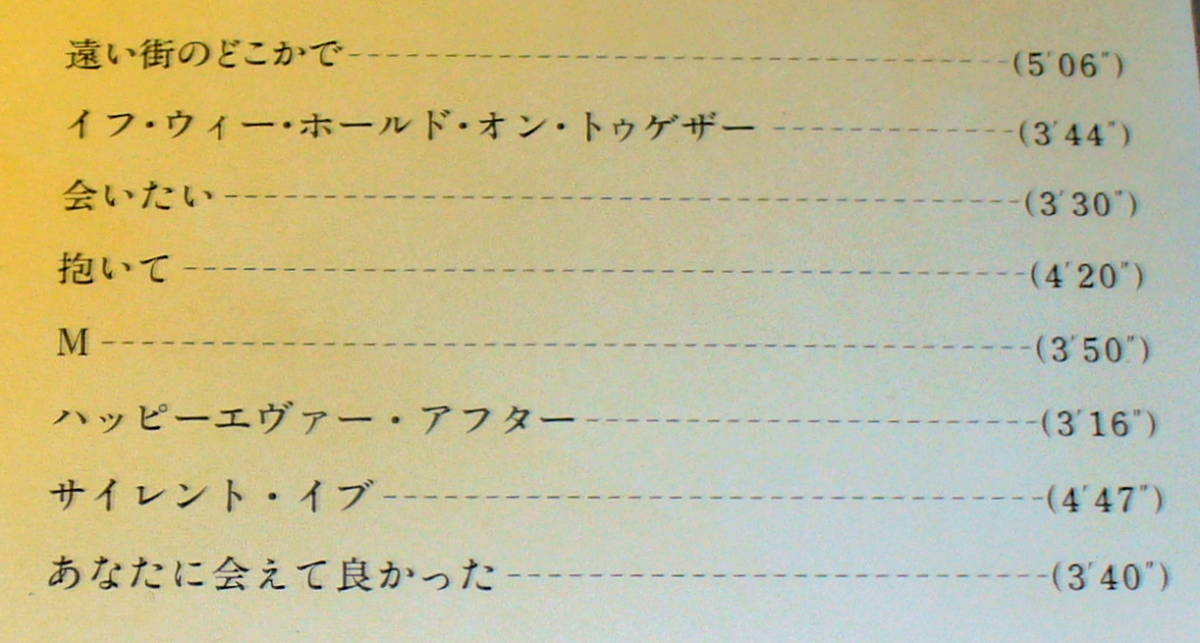 遠い街のどこかで------------------------------(5′06″)
イフ・ウィー・ホールド・オン・トゥゲザー -----------(3′44″)
会いたい------------------------------------(3′30″)
抱いて--------------------------------------(4′20″)
M------------------------------------------(3′50″)
ハッピーエヴァー・アフター---------------------(3′16″)
サイレント・イブ------------------------------(4′47″)
あなたに会えて良かった------------------------(3′40″)